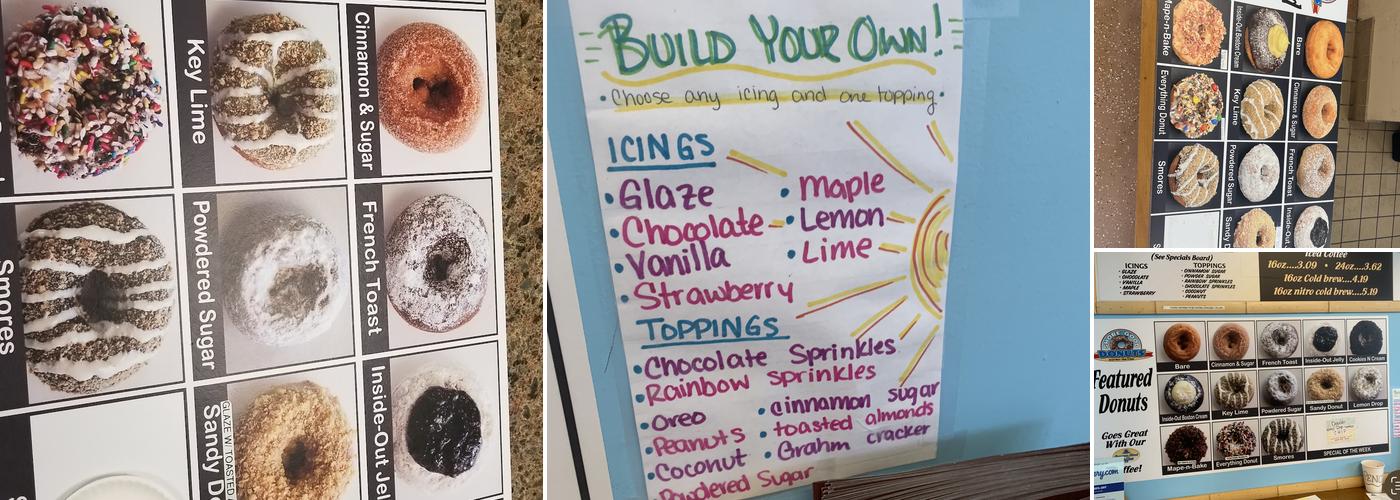 Key Lime
Cinnamon & Sugar
Smores
Powdered Sugar
French Toast
GLAZE W. TOASTED
Sandy
Inside-Out
BUILD YOUR OWN!
• Choose any icing and one topping.
ICINGS
• Glaze
• Chocolate
• Vanilla
• Strawberry
• Maple
• Lemon
• Lime
TOPPINGS
• Chocolate Sprinkles
• Rainbow Sprinkles
• Oreo
• Peanuts
• Coconut
Powdered Sugar
• cinnamon sugar
• toasted almonds
• Grahm cracker
Inside-Out Boston Cream
Bare
Everything Donut
Key Lime
Cinnamon & Sugar
Smores
Powdered Sugar
French Toast
Sandy
Inside-Out
(See Specials Board)
ICINGS
• GLAZE
• CHOCOLATE
• VANILLA
• MAPLE
• STRAWBERRY
TOPPINGS
• CINNAMON SUGAR
• POWDER SUGAR
• RAINBOW SPRINKLES
• CHOCOLATE SPRINKLES
• COCONUT
• PEANUTS
Iced Coffee
16oz....3.09 • 24oz....3.62
16oz Cold brew....4.19
16oz nitro cold brew....5.19
DONUTS
Featured
Donuts
Goes Great
With Our
Bare
Cinnamon & Sugar
French Toast
Inside-Out Jelly
Cookies N Cream
Inside-Out Boston Cream
Key Lime
Powdered Sugar
Sandy Donut
Lemon Drop
Map-n-Bake
Everything Donut
Smores
SPECIAL OF THE WEEK